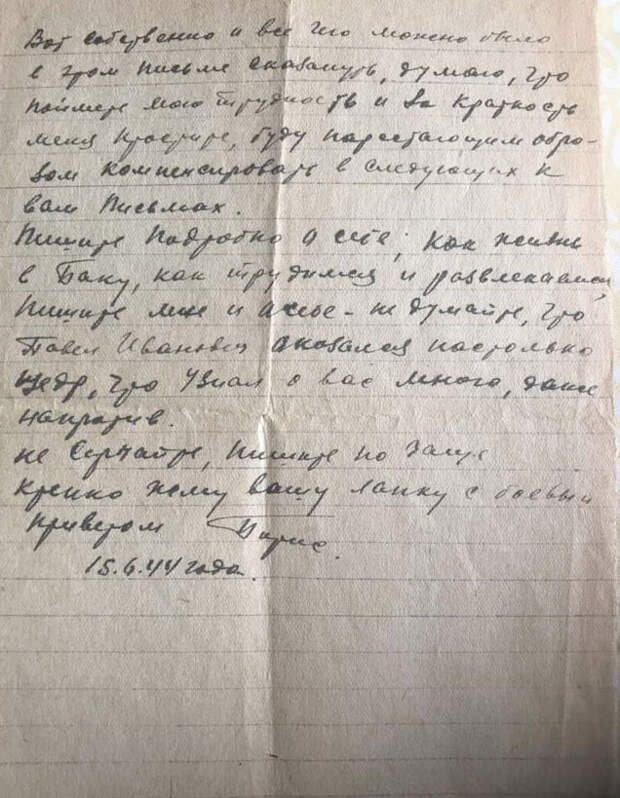 Вот собственно и все что можно было
в этом письме сказануть, думаю, что
поймете мою трудность и за краткость
меня простите, буду нарастающим обра-
зом компенсировать в следующих к
вам письмах.
Пишите подробно о себе, как жизнь
в Баку, как трудимся и развлекаемся,
Пишите мне и о себе - не думайте, что
Павел Иванович оказался настолько
щедр, что узнал о вас много, даже
напротив.
не серчайте, пишите по чаще
крепко жму вашу лапку с боевым
приветом Борис.
15.6.44 года.